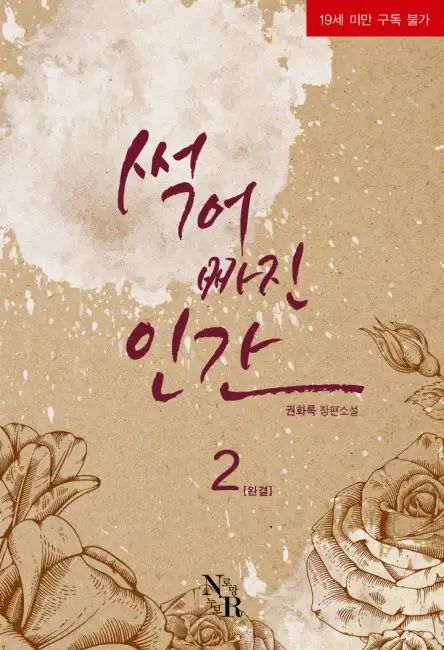 19세 미만 구독 불가
썩어
빠진
인간
권화록 장편소설
2
[완결]
N로망
노보R